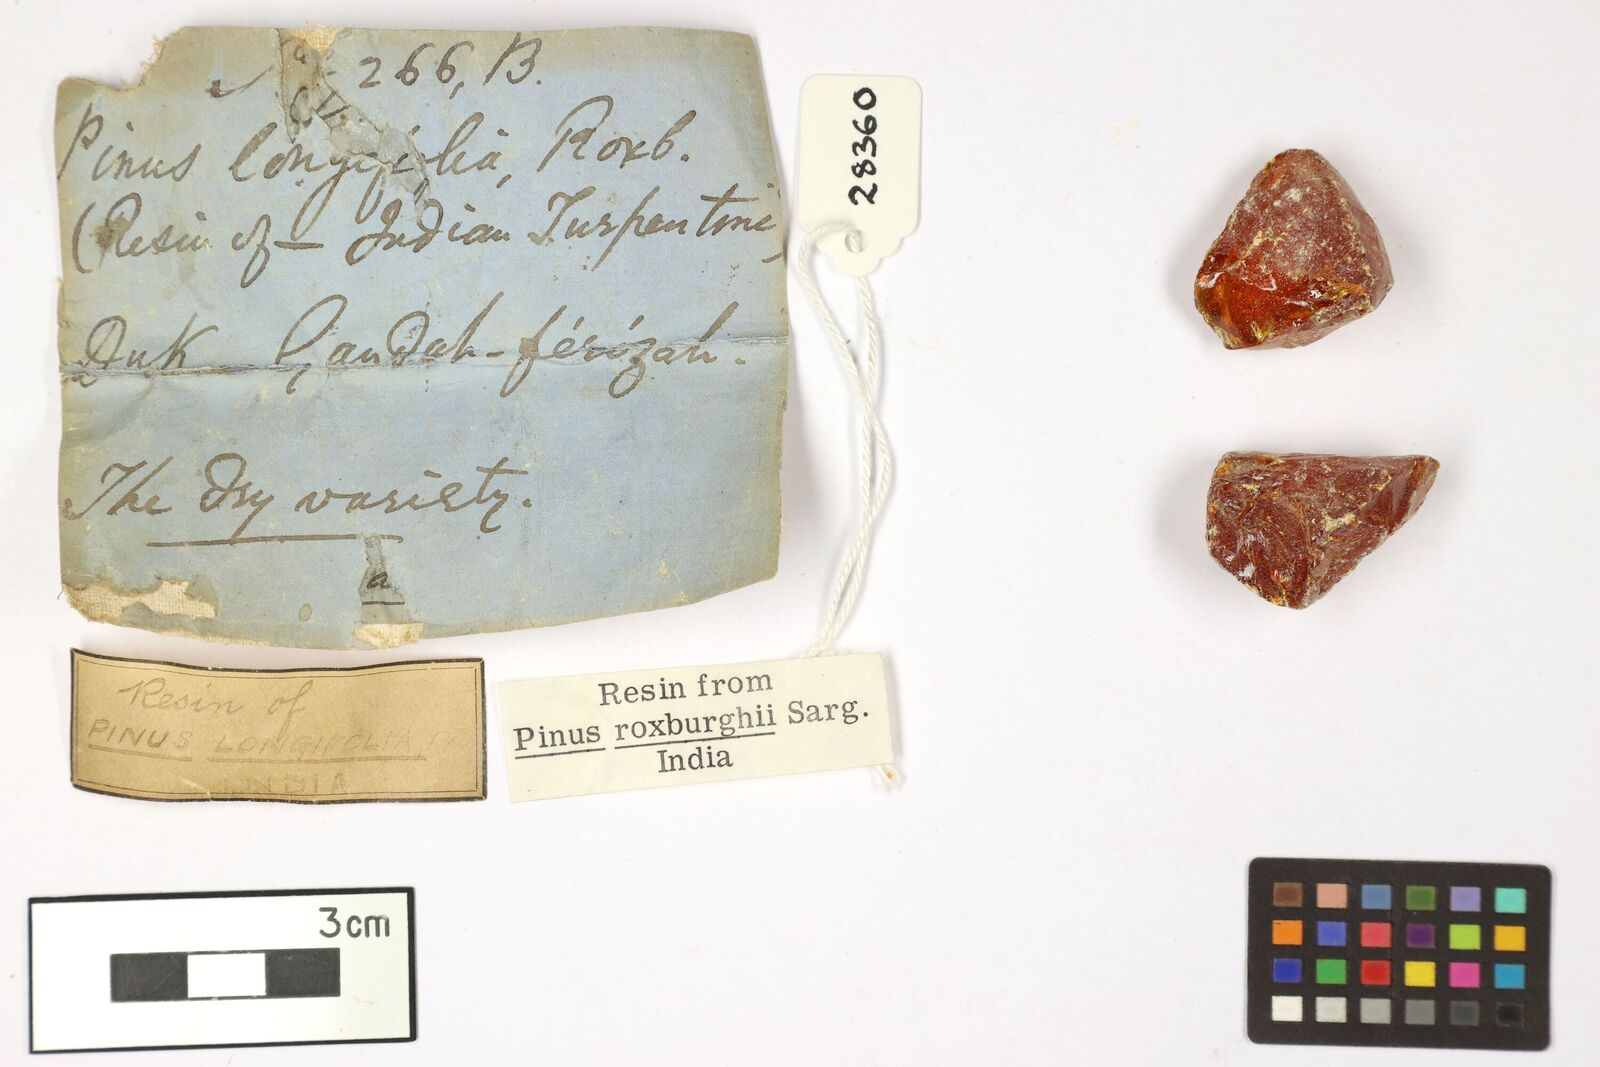 No 266, B.
Pinus longifolia, Roxb.
(Resin of — Indian Turpentine)
Duk Gandah-férózah.
The dry variety.
a
28360
Resin of
PINUS LONGIFOLIA, R
INDIA
Resin from
Pinus roxburghii Sarg.
India
3cm